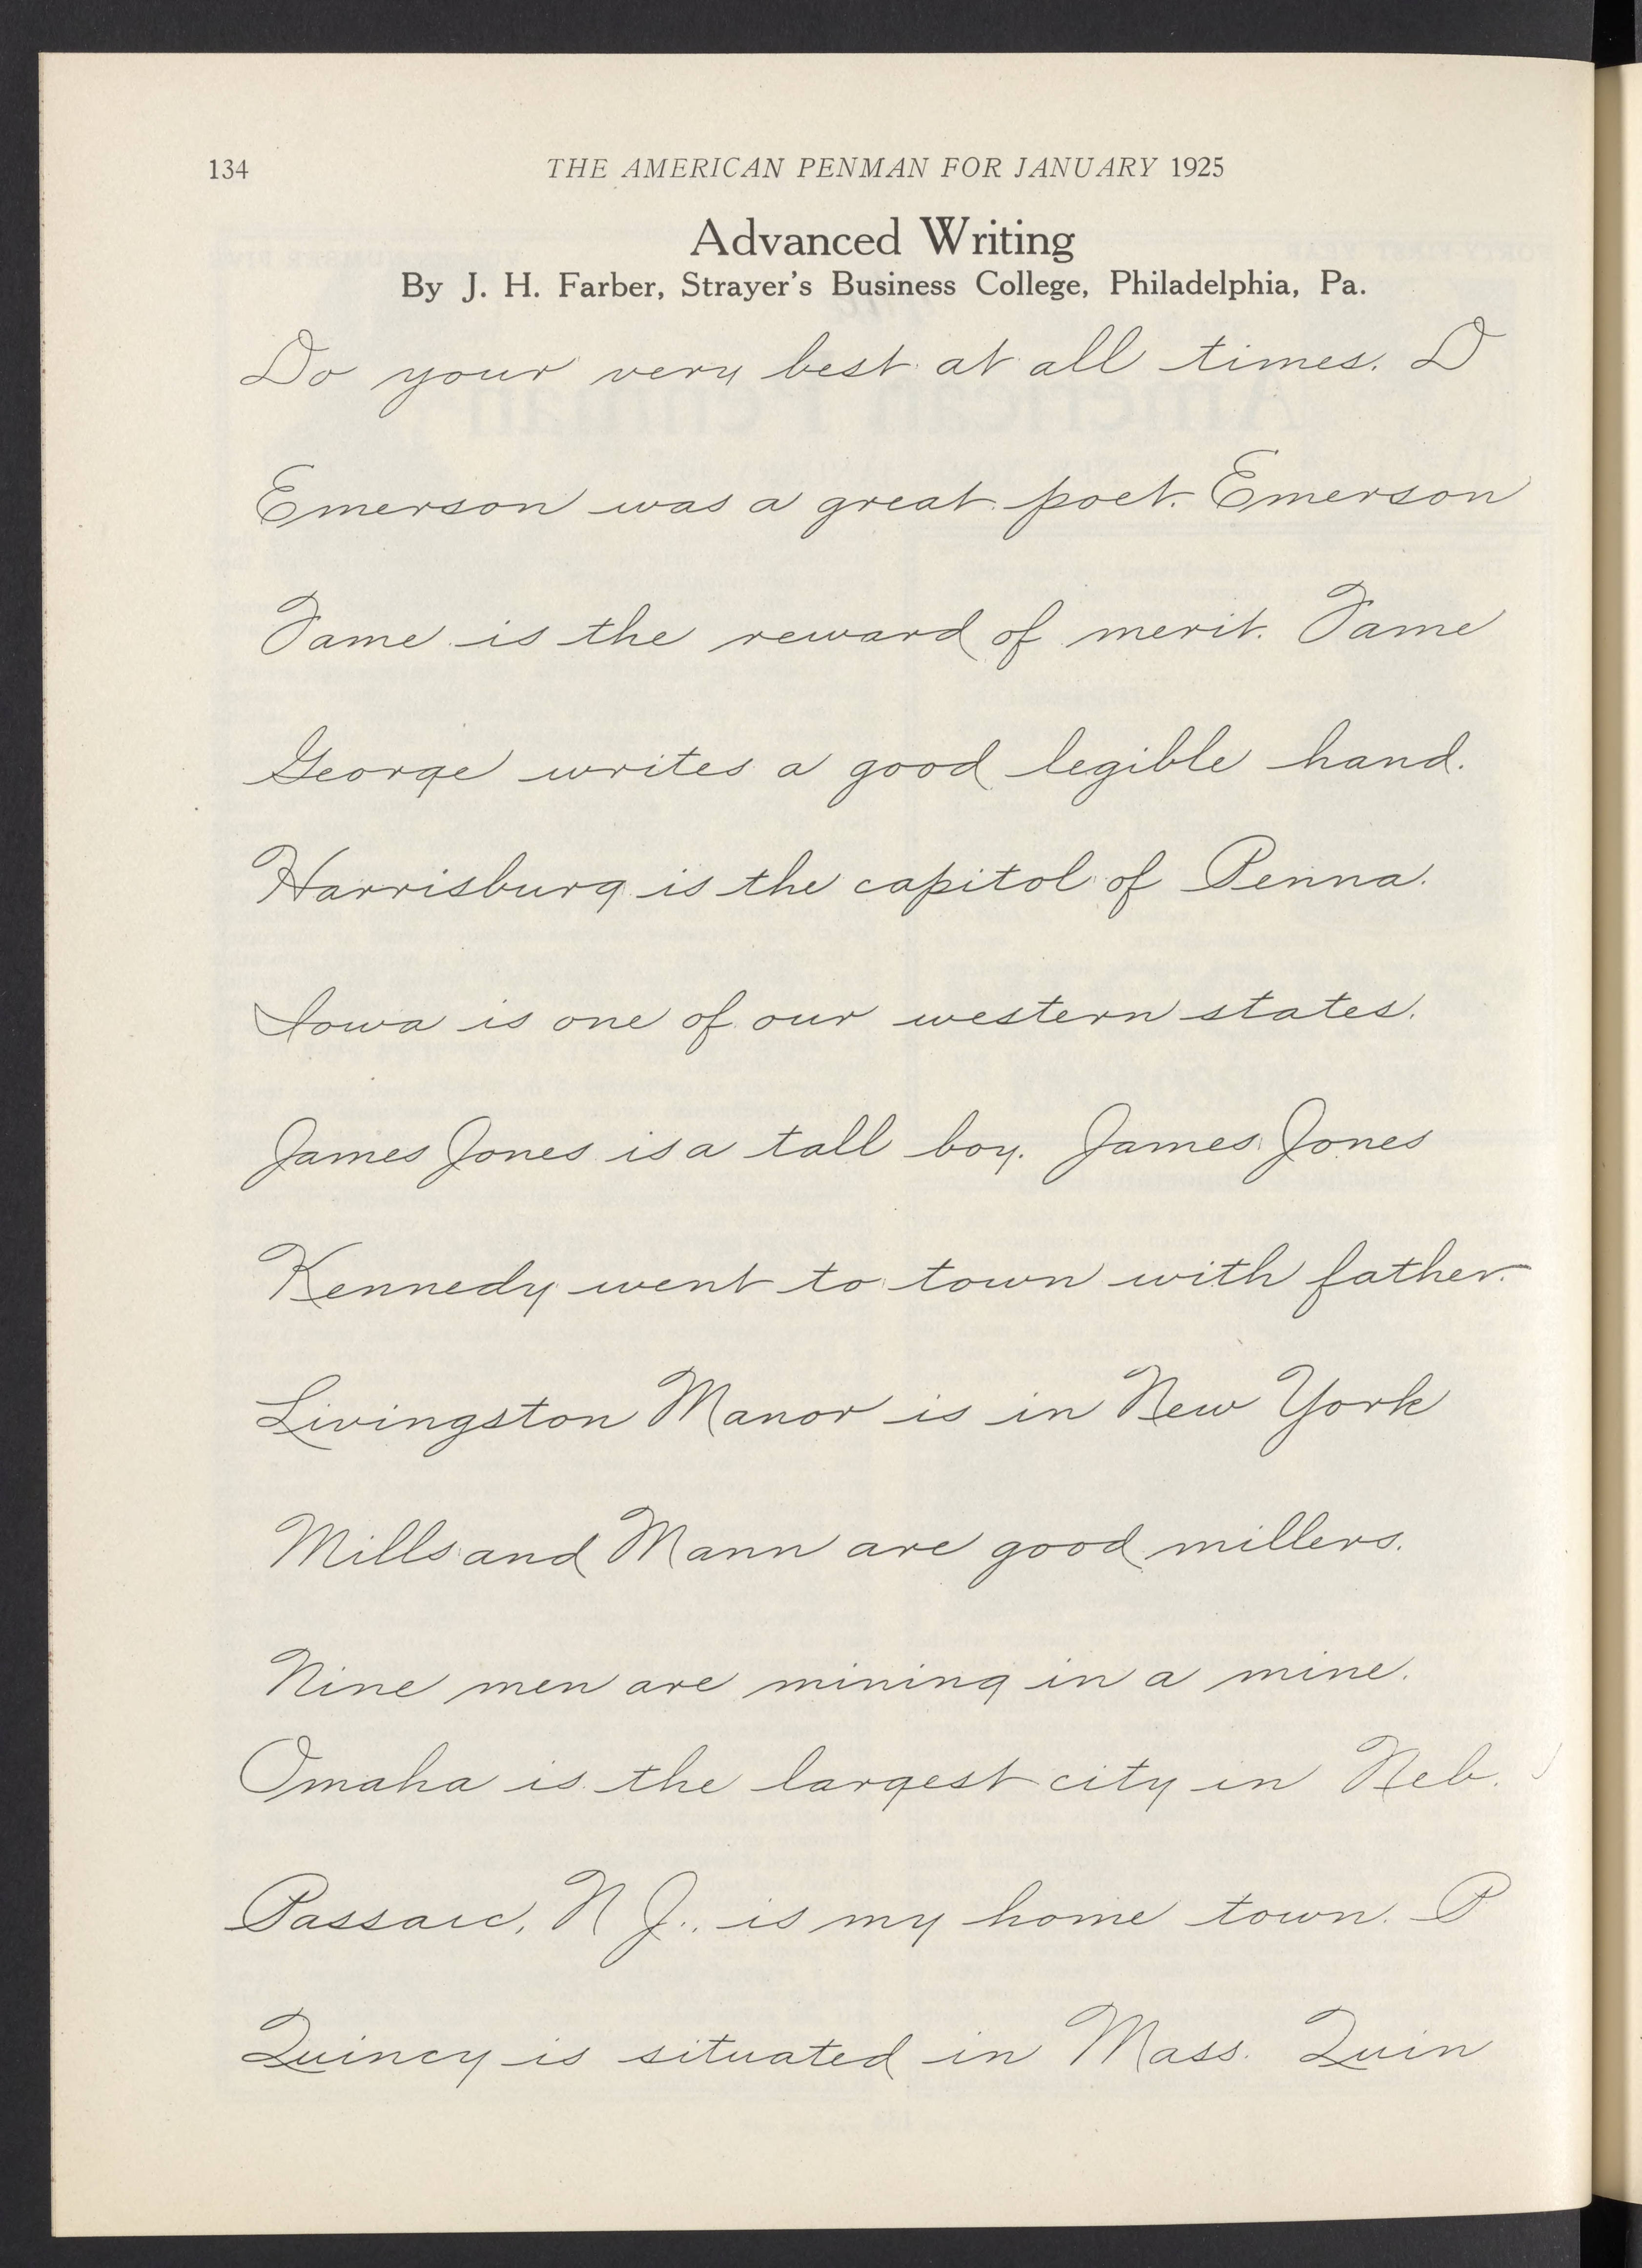 134 THE AMERICAN PENMAN FOR JANUARY 1925
Advanced Writing
By J. H. Farber, Strayer's Business College, Philadelphia, Pa.
Do your very best at all times. D
Emerson was a great poet. Emerson
Fame is the reward of merit. Fame
George writes a good legible hand.
Harrisburg is the capitol of Penna.
Iowa is one of our western states.
James Jones is a tall boy. James Jones
Kennedy went to town with father.
Livingston Manor is in New York
Mills and Mann are good millers.
Nine men are mining in a mine.
Omaha is the largest city in Neb.
Passaic, N J., is my home town. P
Quincy is situated in Mass. Quin